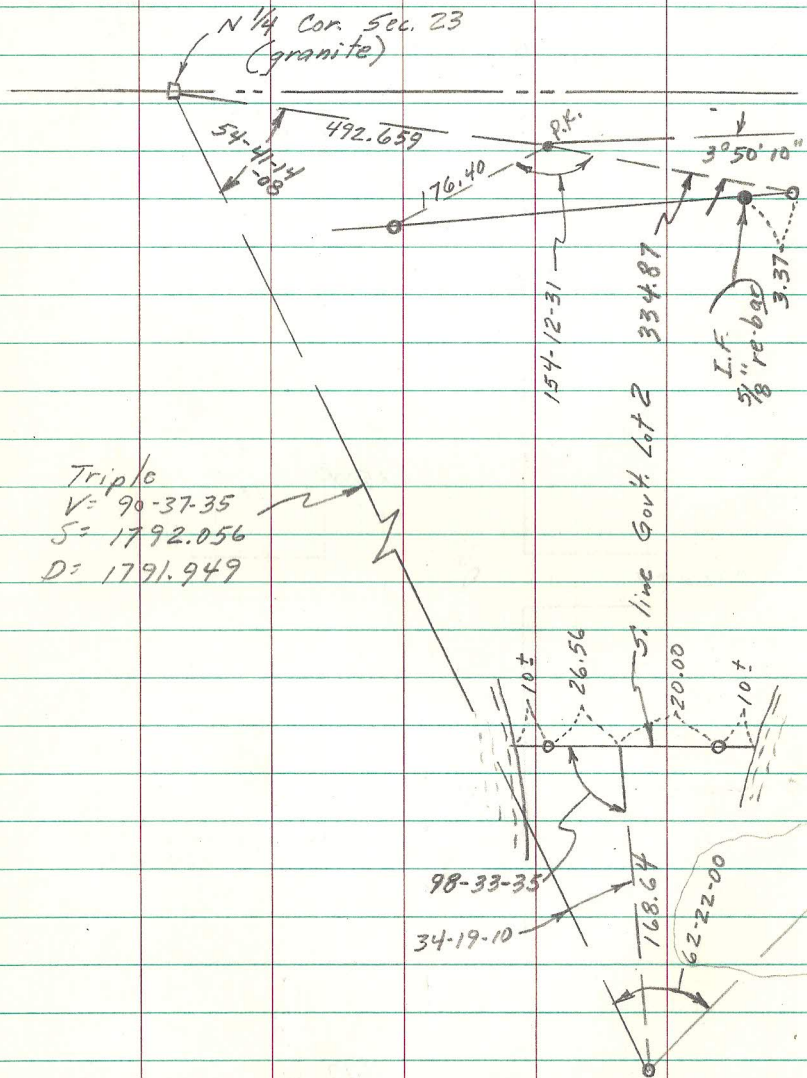 N 1/4 Cor. Sec. 23
(granite)
54-41-14
-08
492.659
P.K.
3°50'10"
176.40
154-12-31
334.87
I.F.
5/8" re-bar
3.37
S. line Gov't. Lot 2
Triple
V= 90-37-35
S= 1792.056
D= 1791.949
10±
26.56
20.00
10±
98-33-35
34-19-10
168.64
62-22-00